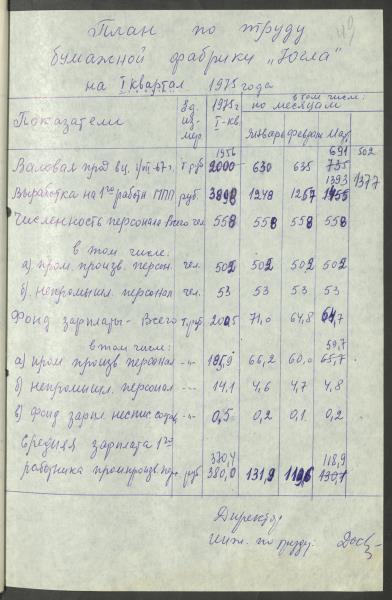 План по труду
бумажной фабрики „Югла"
на I квартал 1975 года
Показатели Ед. из-мер 1975г. I-кв. по месяцам в том числе:
Январь Февраль Март
1956 691 502
Валовая прод. в ц. т.руб 2000 630 635 735
1393 1377
Выработка на 1го работн. ППП руб. 3898 1248 1257 1455
Численность персонала Всего чел. 558 558 558 558
в том числе:
а) пром. произв. персон. чел. 502 502 502 502
б) непромышл. персонал чел. 53 53 53 53
Фонд зарплаты - Всего т.руб 200,5 71,0 64,8 64,7
в том числе: 59,7
а) пром произв персонал -"- 185,9 66,2 60,0 65,7
б) непромышл. персонал -"- 14,1 4,6 4,7 4,8
в) фонд зарпл неспис сост -"- 0,5 0,2 0,1 0,2
Средняя зарплата 1го
370,4 118,9
работника промпроизв пер. руб 380,0 131,9 119,6 130,1
Директор
Инж. по труду: